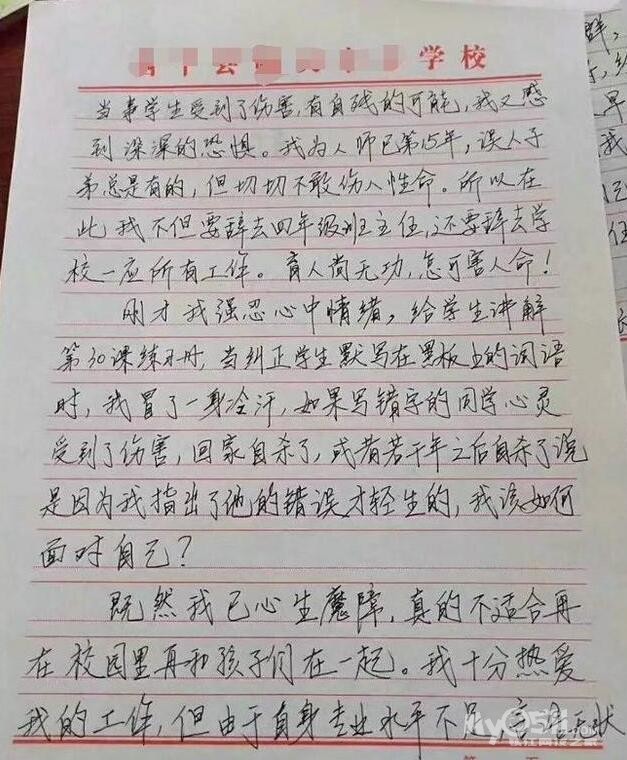 学校
当事学生受到了伤害,有自残的可能,我又感
到深深的恐惧。我为人师已第15年,误人子
弟总是有的,但切切不敢伤人性命。所以在
此我不但要辞去四年级班主任,还要辞去学
校一应所有工作。育人尚无功,怎可害人命!
刚才我强忍心中情绪,给学生讲解
第30课练习册,当纠正学生默写在黑板上的词语
时,我冒了一身冷汗,如果写错字的同学心灵
受到了伤害,回家自杀了,或者若干年之后自杀了说
是因为我指出了他的错误才轻生的,我该如何
面对自己?
既然我已心生魔障,真的不适合再
在校园里再和孩子们在一起。我十分热爱
我的工作,但由于自身专业水平不足 言语无状